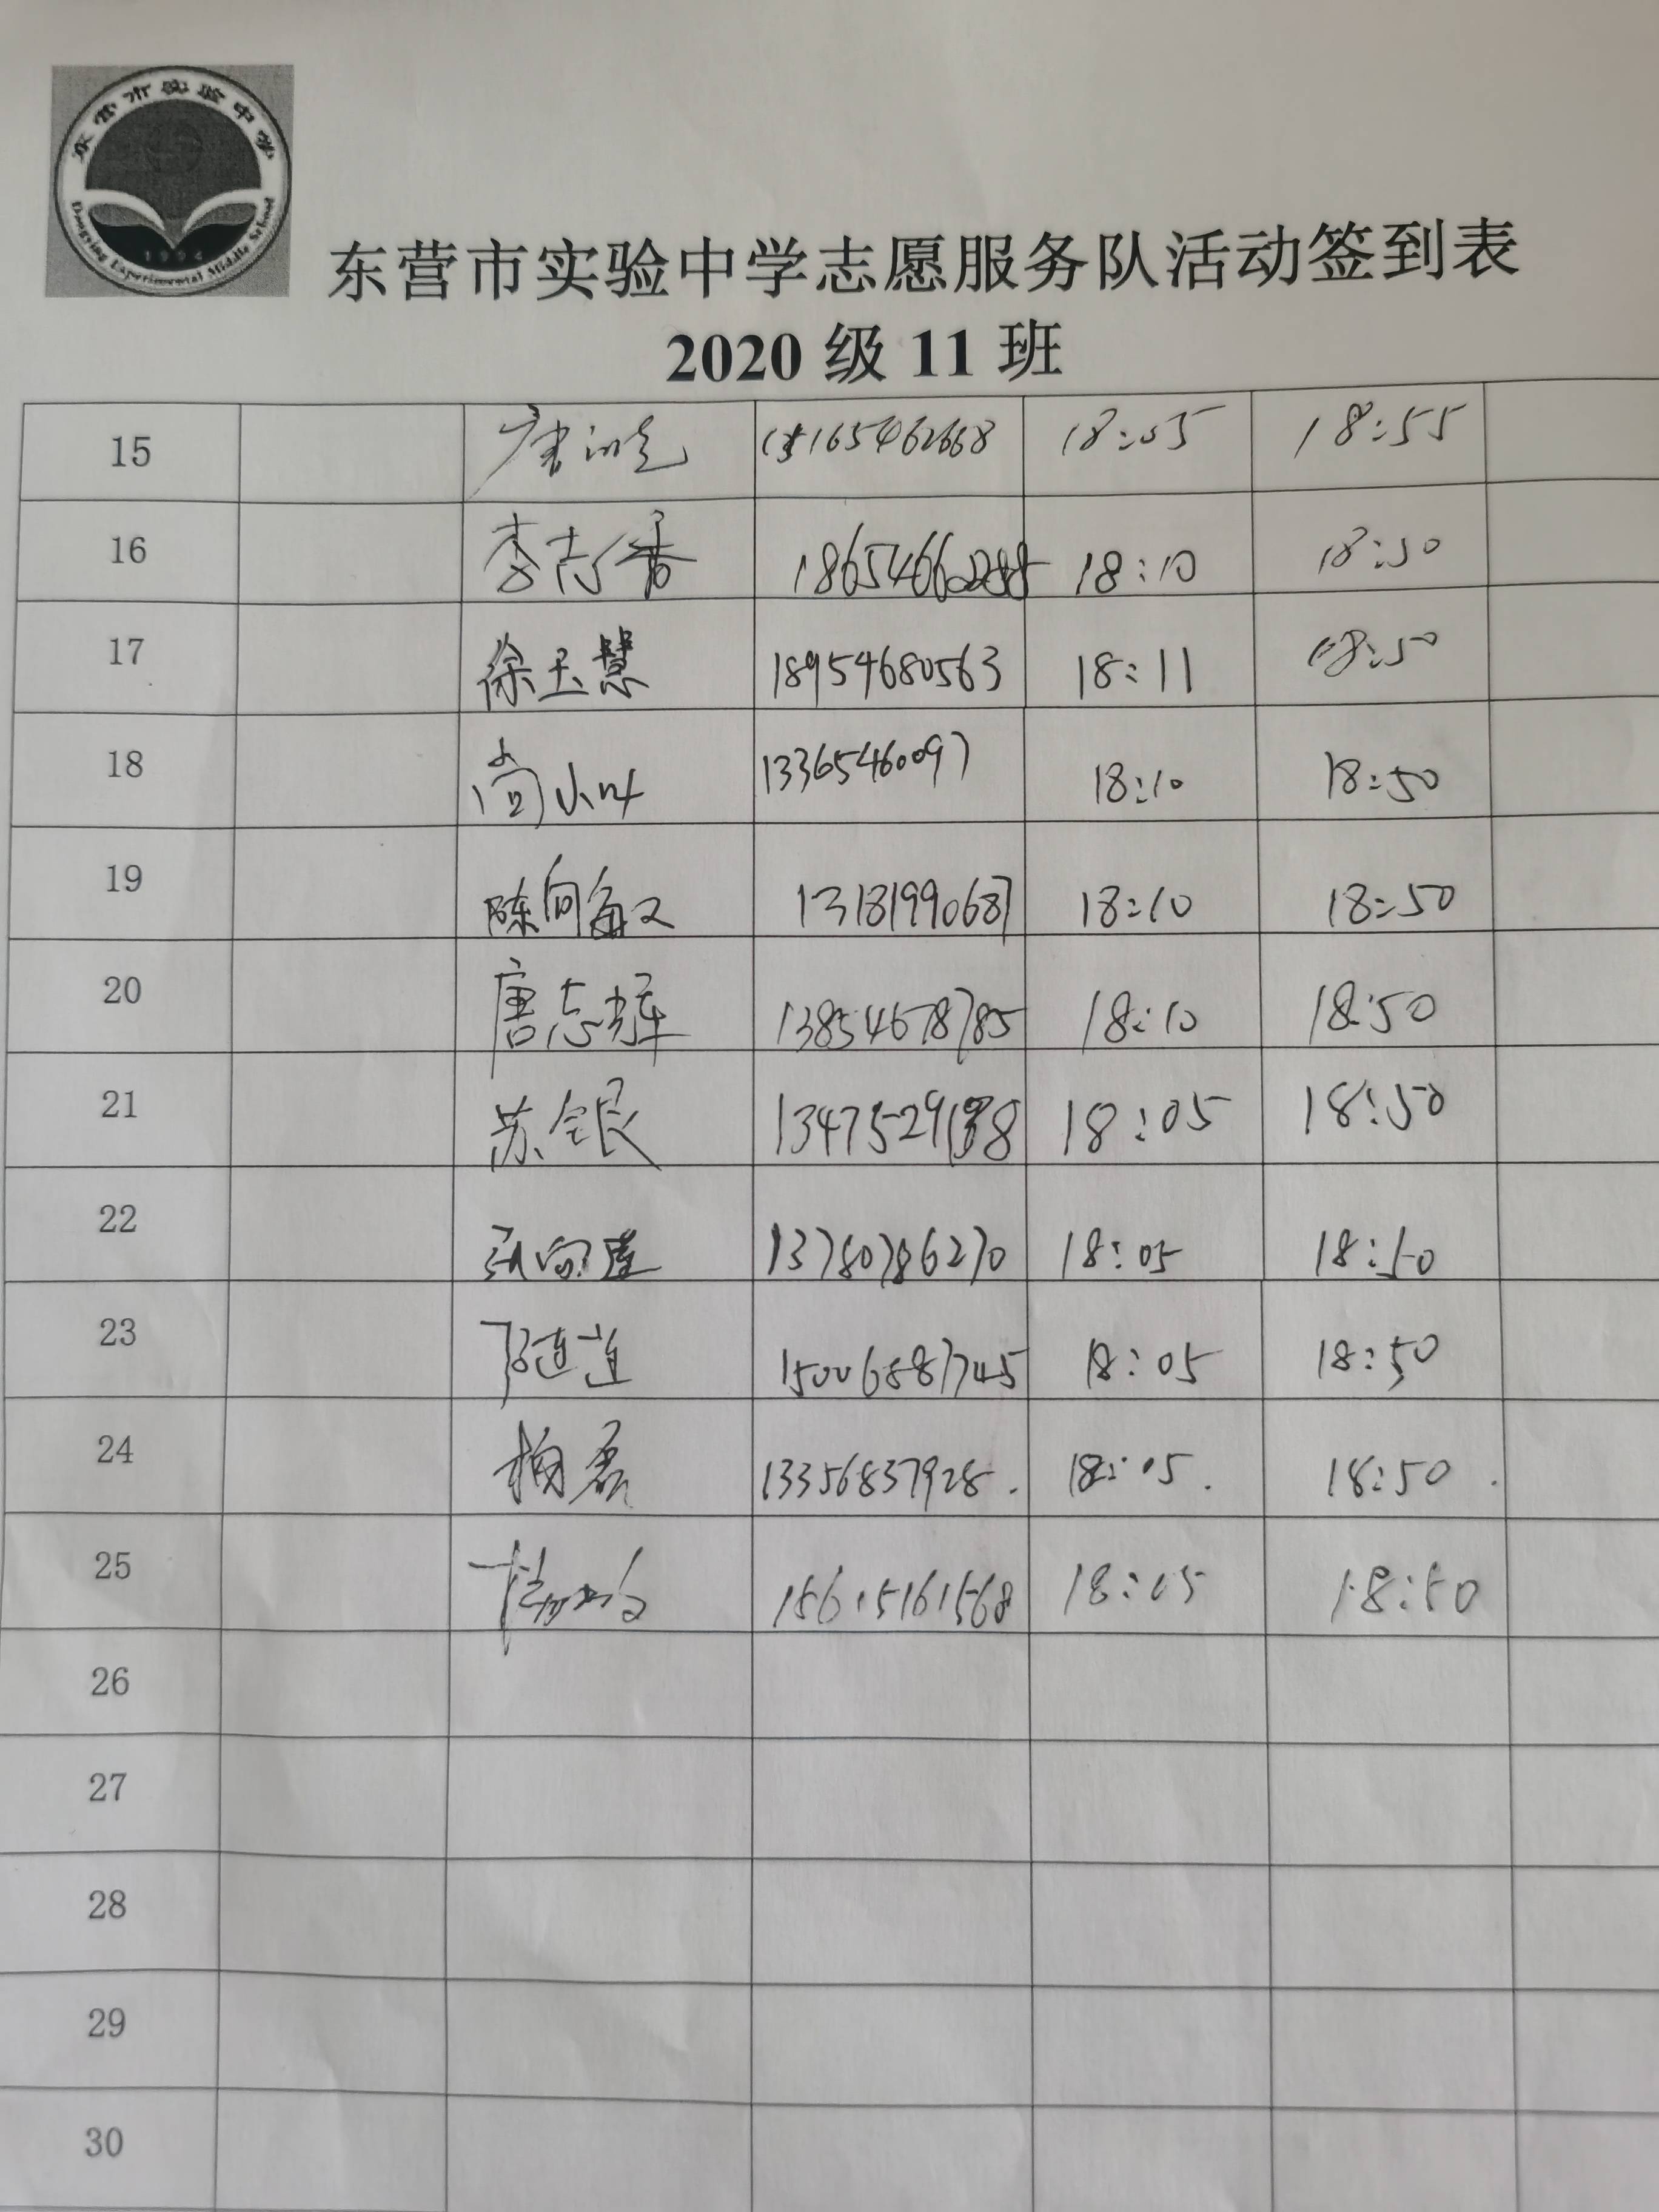 东营市实验中学
Dongying Experimental Middle School
东营市实验中学志愿服务队活动签到表
2020 级 11 班
15 18:05 18:55
16 李志香 18:10 18:50
17 徐玉慧 18954680563 18:11 18:50
18 尚小叶 13365460097 18:10 18:50
19 陈向敏 13181990687 18:10 18:50
20 唐志辉 13854678785 18:10 18:50
21 苏银 18:05 18:50
22 13780786270 18:05 18:50
23 15006887745 18:05 18:50
24 梅磊 13356837928. 18:05. 18:50.
25 15615161568 18:05 18:50
26
27
28
29
30